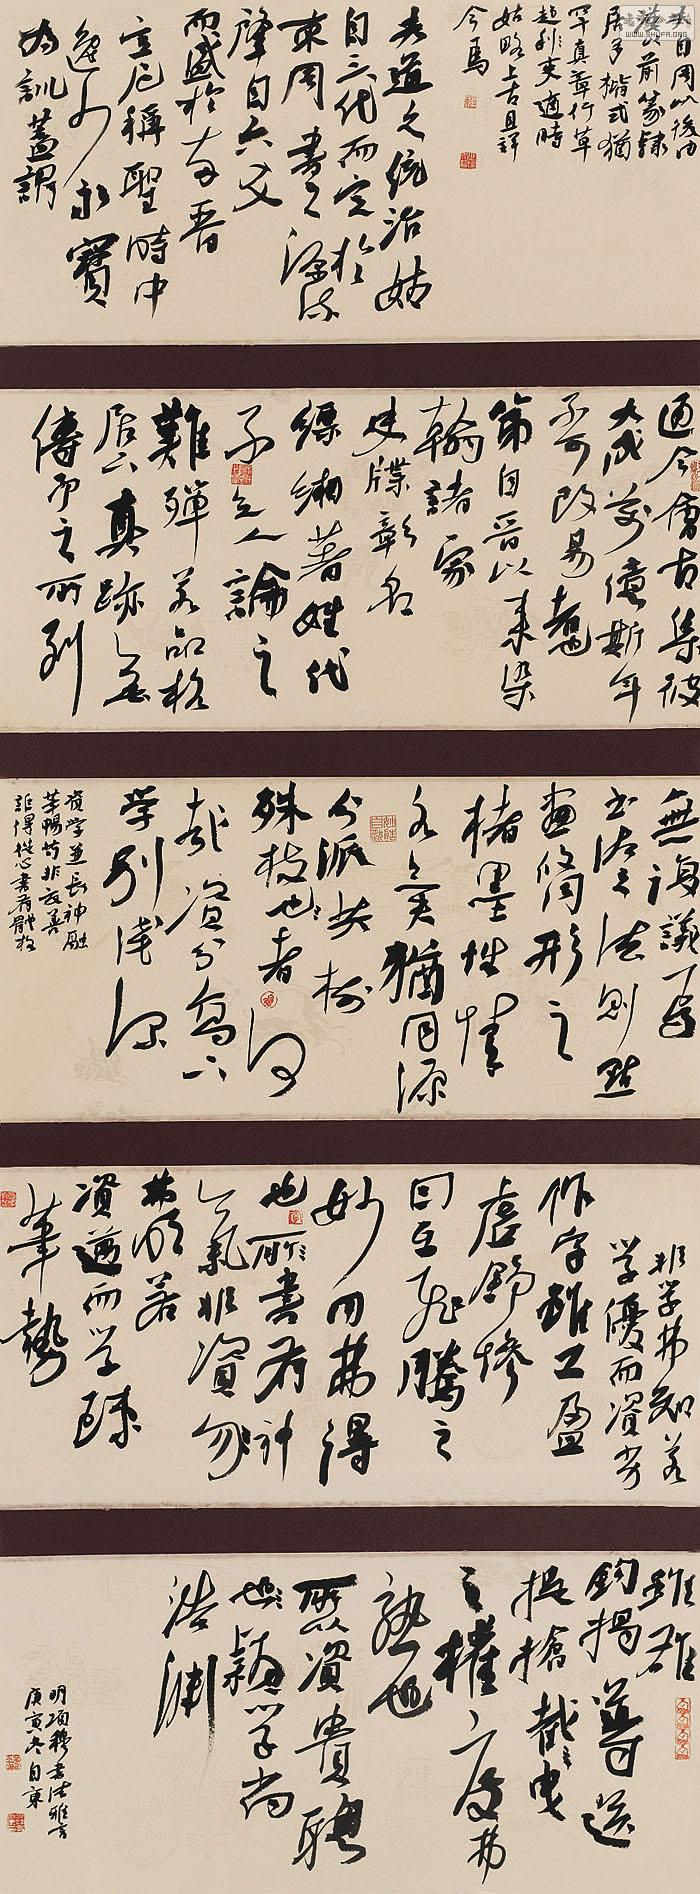 自周以後由
漢以前篆隸
居多楷式猶
罕真章行草
趨吏適時
姑略上古且詳
今焉
夫道之統治始
自三代而定於
東周書之源流
肇自六爻
而盛於兩晉
宣尼稱聖時中
逸少永寶
為訓蓋謂
通今會古集彼
大成萬億斯年
不可改易者也
第自晉以來染
翰諸家
史牒彰名
縹緗著姓代
不乏人論之
難殫若品格
居下真跡無
傳予之所列
無復議焉
書法之法則點
畫修形之
楮墨性情
各異猶同源
分派共樹
殊枝也者何
哉資分高下
学別淺深
資学兼長神融
筆暢苟非交善
詎得從心書有體格
非学弗知若
学優而資劣
作字雖工盈
虛舒慘
回互飛騰之
妙用弗得
也所書有神
氣非資勿
弗明若
資邁而学疎
筆勢
雖雄
鉤揭導送
提搶截曳
之權度弗
熟也
所以資貴聰
穎学尚
浩淵
明項穆書法雅言
庚寅冬自東
WWW.SHUFA.ORG